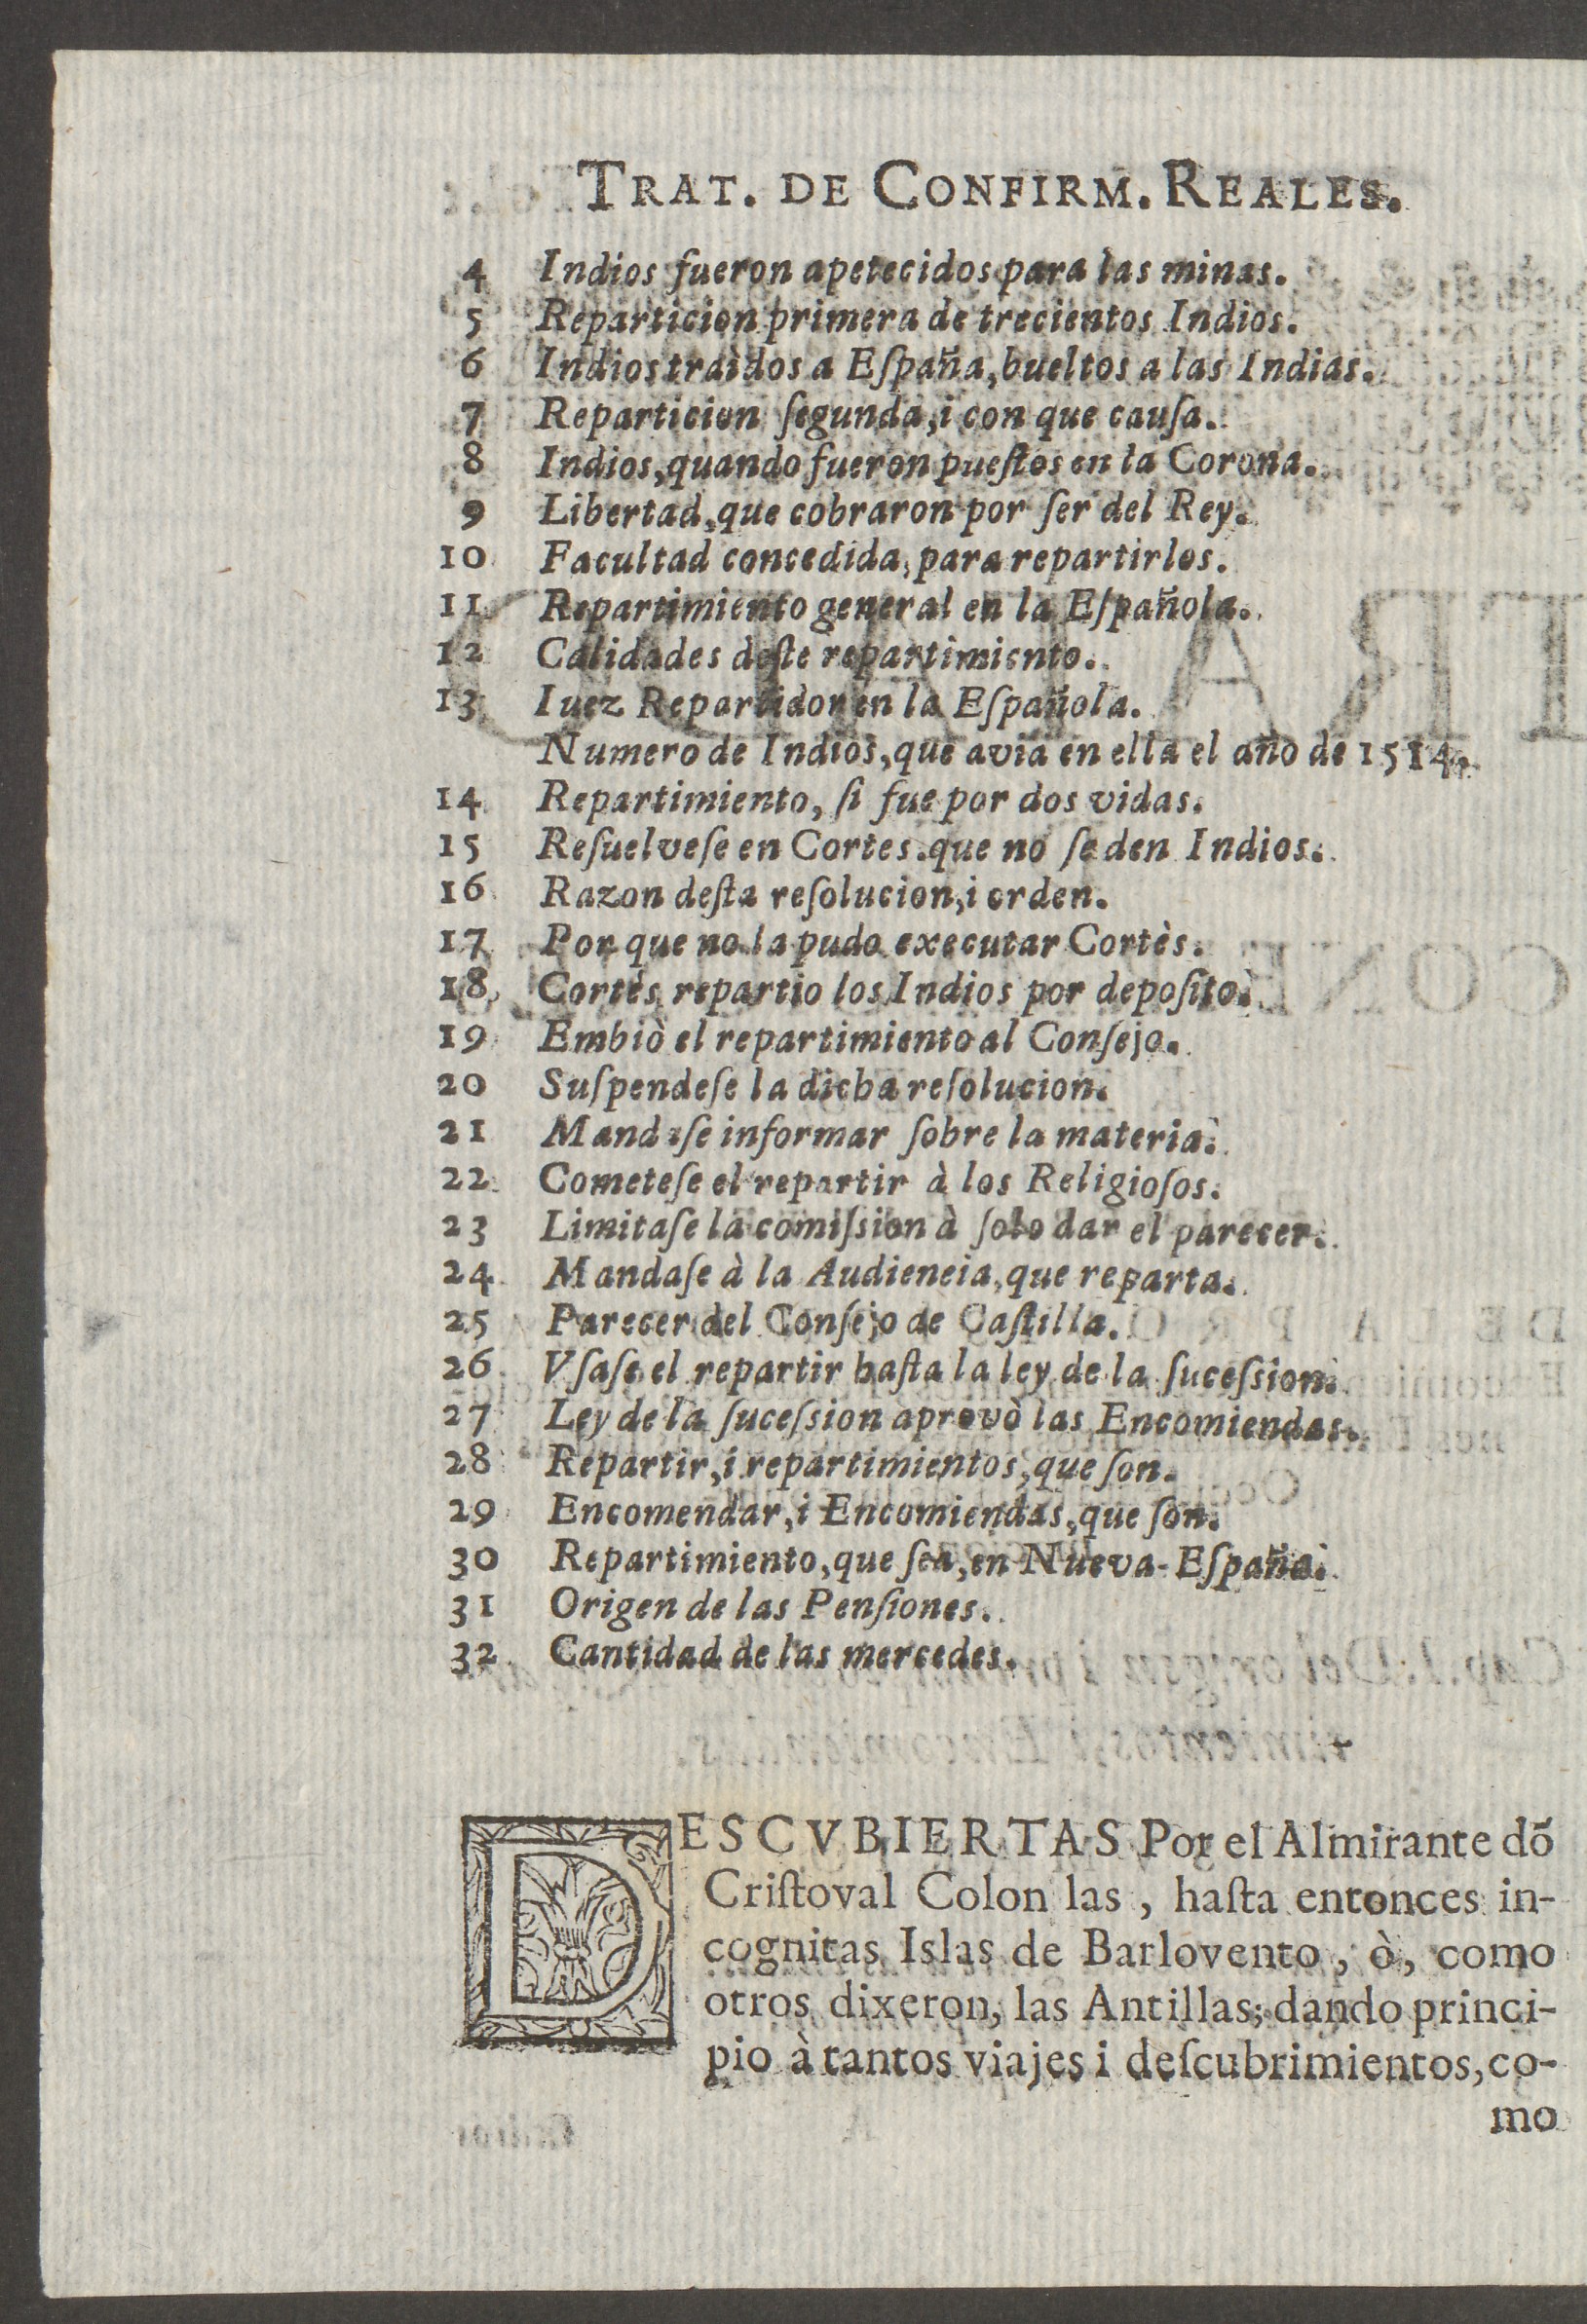 TRAT. DE CONFIRM. REALES.
4 Indios fueron apetecidos para las minas.
5 Reparticion primera de trecientos Indios.
6 Indios traìdos a Eſpaña, bueltos a las Indias.
7 Reparticion ſegunda, i con que cauſa.
8 Indios, quando fueron pueſtos en la Corona.
9 Libertad, que cobraron por ſer del Rey.
10 Facultad concedida, para repartirlos.
11 Repartimiento general en la Eſpañola.
12 Calidades deſte repartimiento.
13 Iuez Repartidor en la Eſpañola.
Numero de Indios, que avia en ella el año de 1514.
14 Repartimiento, ſi fue por dos vidas.
15 Reſuelveſe en Cortes. que no ſe den Indios.
16 Razon deſta reſolucion, i orden.
17 Por que no la pudo executar Cortès.
18 Cortès repartio los Indios por depoſito.
19 Embiò el repartimiento al Conſejo.
20 Suſpendeſe la dicha reſolucion.
21 Mandaſe informar ſobre la materia.
22 Cometeſe el repartir à los Religioſos.
23 Limitaſe la comiſsion à ſolo dar el parecer.
24 Mandaſe à la Audieneia, que reparta.
25 Parecer del Conſejo de Caſtilla.
26 Vſaſe el repartir haſta la ley de la ſuceſsion.
27 Ley de la ſuceſsion aprovò las Encomiendas.
28 Repartir, i repartimientos, que ſon.
29 Encomendar, i Encomiendas, que ſon.
30 Repartimiento, que ſea, en Nueva-Eſpaña.
31 Origen de las Penſiones.
32 Cantidad de las mercedes.
DESCVBIERTAS Por el Almirante dõ
Criſtoval Colon las, haſta entonces in-
cognitas Islas de Barlovento, ò, como
otros dixeron, las Antillas; dando princi-
pio à tantos viajes i deſcubrimientos, co-
mo